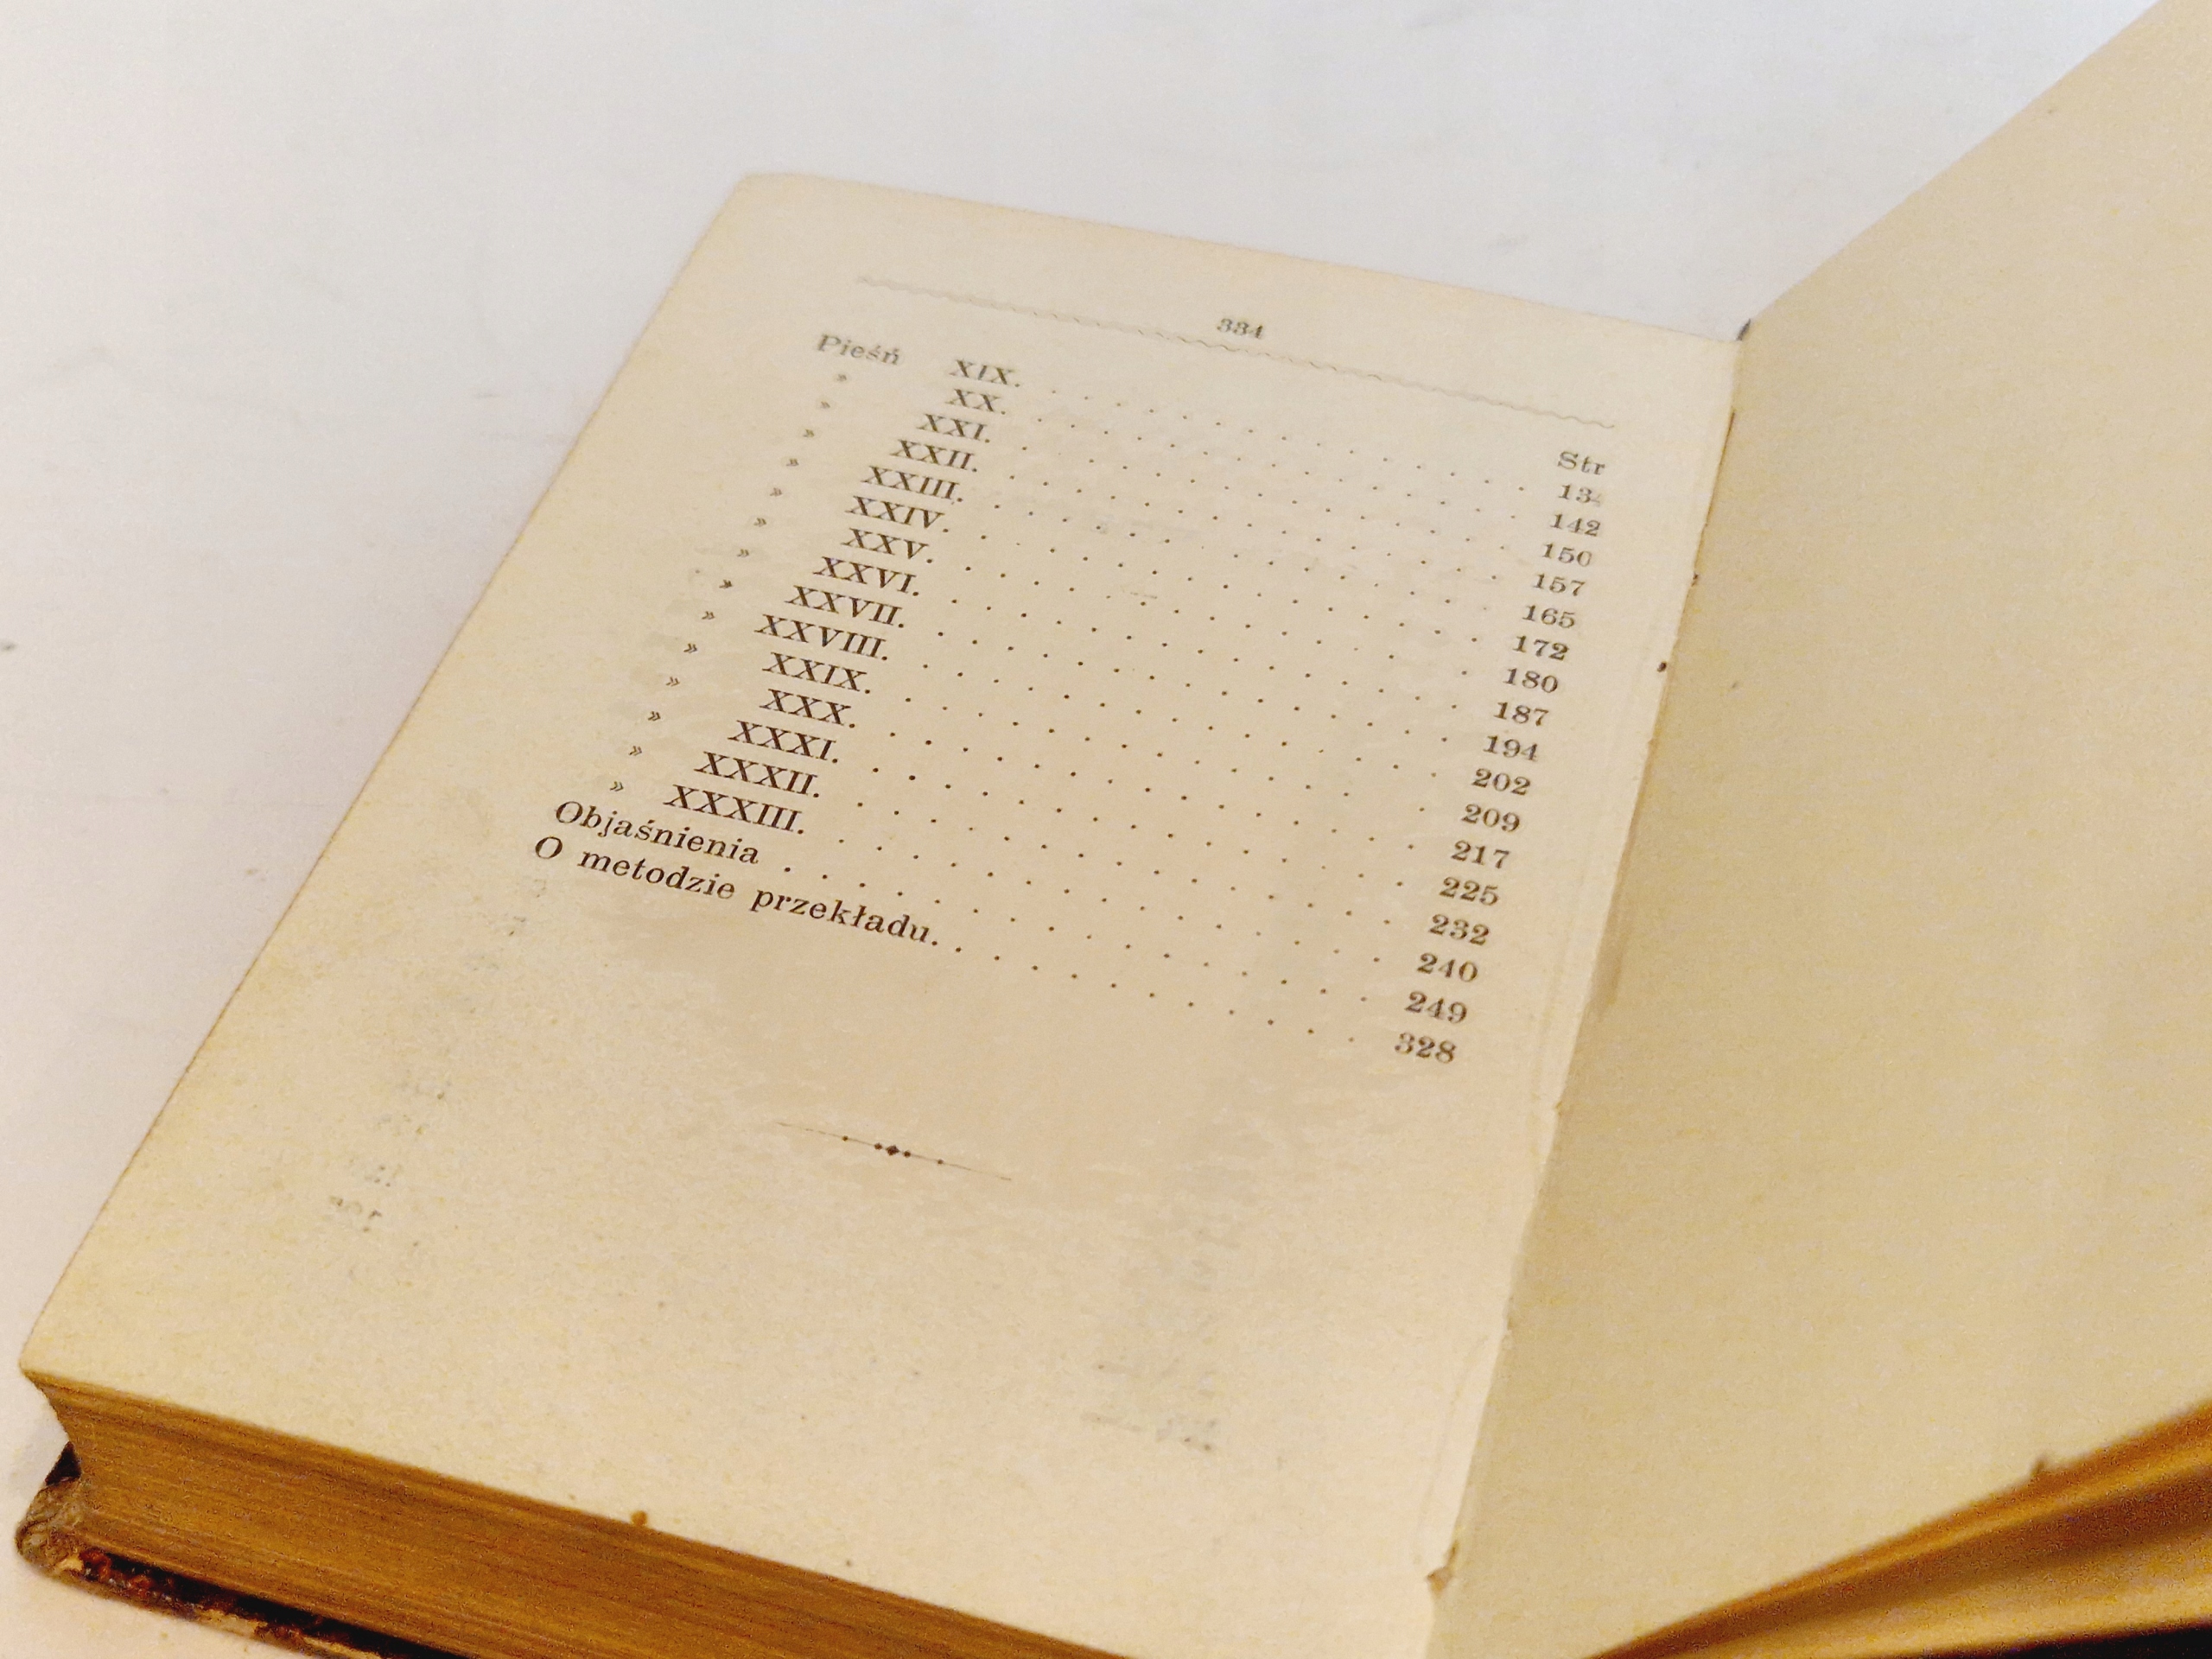 334
Str
Pieśń XIX. 134
» XX. 142
» XXI. 150
» XXII. 157
» XXIII. 165
» XXIV. 172
» XXV. 180
» XXVI. 187
» XXVII. 194
» XXVIII. 202
» XXIX. 209
» XXX. 217
» XXXI. 225
» XXXII. 232
» XXXIII. 240
Objaśnienia 249
O metodzie przekładu. 328